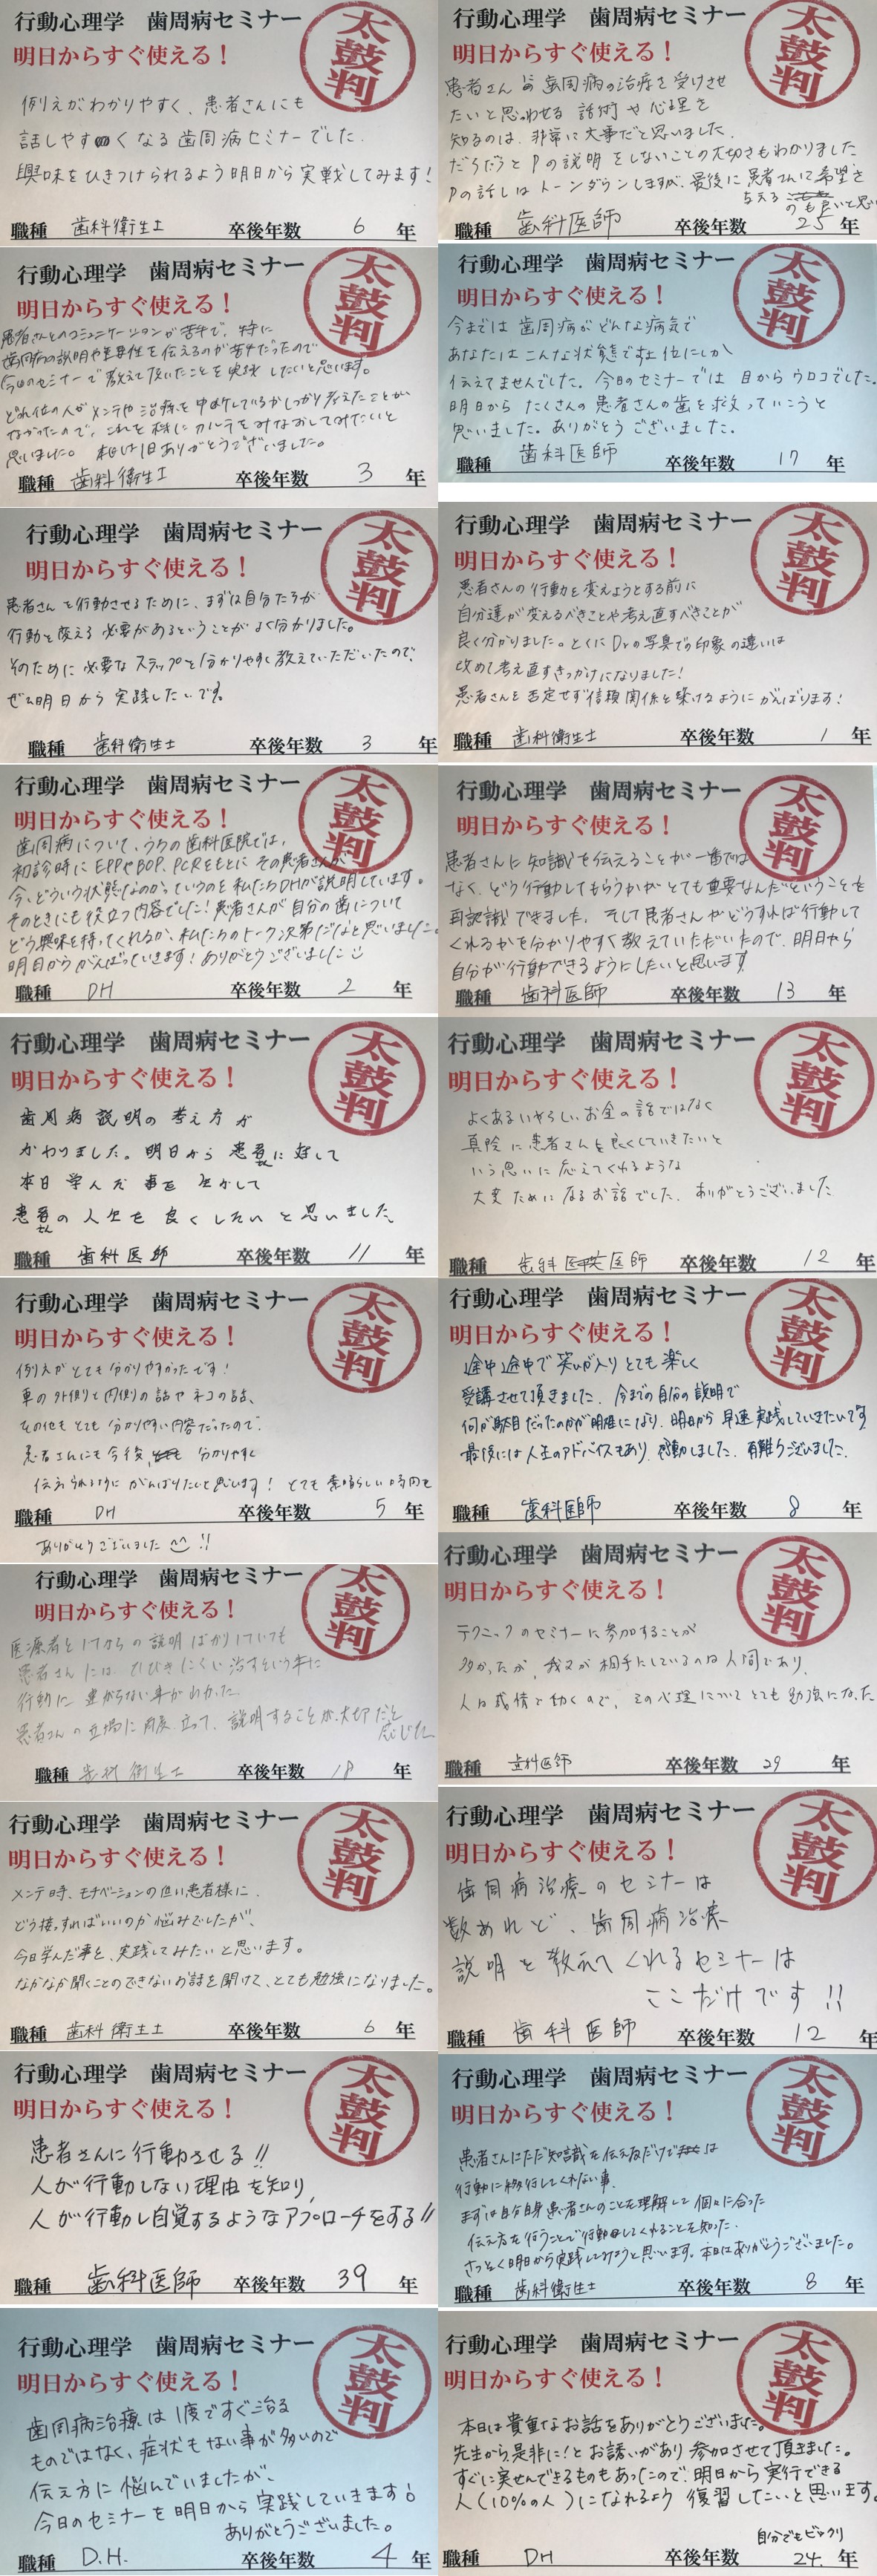 行動心理学　歯周病セミナー
明日からすぐ使える！
太鼓判
例えがわかりやすく、患者さんにも
話しやすくなる歯周病セミナーでした.
興味をひきつけられるよう明日から実戦してみます！
職種　歯科衛生士　卒後年数　6　年
行動心理学　歯周病セミナー
明日からすぐ使える！
太鼓判
患者さんが歯周病の治療を受けさせ
たいと思わせる 話術や心理を
知るのは、非常に大事だと思いました.
だらだらとPの説明をしないことの大切さもわかりました
Pの話しはトーンダウンしますが、最後に患者さんに希望を
与えるのも良いと思い
職種　歯科医師　卒後年数　25　年
行動心理学　歯周病セミナー
明日からすぐ使える！
太鼓判
患者さんとのコミュニケーションが苦手で、特に
歯周病の説明や重要性を伝えるのが苦手だったので
今回のセミナーで教えて頂いたことを実践したいと思います。
どれ位の人がメンテや治療を中断しているかしっかり考えたことが
なかったので、これを機にカルテをみなおしてみたいと
思いました。 本日は1日ありがとうございました。
職種　歯科衛生士　卒後年数　3　年
行動心理学　歯周病セミナー
明日からすぐ使える！
太鼓判
今までは 歯周病がどんな病気で
あなたは こんな状態ですね 位にしか
伝えてませんでした。今日のセミナーでは 目からウロコでした。
明日から たくさんの 患者さんの歯を救っていこうと
思いました。ありがとうございました。
歯科医師
職種　卒後年数　17　年
行動心理学　歯周病セミナー
明日からすぐ使える！
太鼓判
患者さんを行動させるために、まずは自分たちが
行動を変える必要があるということがよく分かりました。
そのために必要なステップを分かりやすく教えていただいたので、
ぜひ明日から実践したいです。
職種　歯科衛生士　卒後年数　3　年
行動心理学　歯周病セミナー
明日からすぐ使える！
太鼓判
患者さんの行動を変えようとする前に
自分達が変えるべきことや考え直すべきことが
良く分かりました。とくにDrの写真での印象の違いは
改めて考え直すきっかけになりました！
患者さんを否定せず信頼関係を築けるようにがんばります！
職種　歯科衛生士　卒後年数　1　年
行動心理学　歯周病セミナー
明日からすぐ使える！
太鼓判
歯周病について、うちの歯科医院では、
初診時にEPPやBOP、PCRをもとに その患者さんが
今、どういう状態なのか、ていうのを私たちDHが説明しています。
そのときにも役立つ内容でした！患者さんが自分の歯について
どう興味を持ってくれるか、私たちのトーク次第だなと思いました。
明日からがんばっていきます！ありがとうございました
職種　DH　卒後年数　2　年
行動心理学　歯周病セミナー
明日からすぐ使える！
太鼓判
患者さんに知識を伝えることが一番では
なく、どう行動してもらうかがとても重要なんだということを
再認識できました。そして患者さんがどうすれば行動して
くれるかを分かりやすく教えていただいたので、明日から
自分が行動できるようにしたいと思います。
職種　歯科医師　卒後年数　13　年
行動心理学　歯周病セミナー
明日からすぐ使える！
太鼓判
歯周病説明の考え方が
かわりました。明日から患者さんに対して
本日学んだ事を生かして
患者さんの人生を良くしたいと思いました。
職種　歯科医師　卒後年数　11　年
行動心理学　歯周病セミナー
明日からすぐ使える！
太鼓判
よくあるいやらしいお金の話ではなく
真険に患者さんを良くしていきたいと
いう思いに応えてくれるような
大変ためになるお話でした。ありがとうございました
職種　歯科医師　卒後年数　12　年
行動心理学　歯周病セミナー
明日からすぐ使える！
太鼓判
例えがとても分かりやすかったです！
車の外側と内側の話やネコの話、
その他もとても分かりやすい内容だったので、
患者さんにも今後、分かりやすく
伝えられるように がんばりたいと思います！ とても素晴らしい時間を
職種　DH　卒後年数　5　年
ありがとうございました ^^ !!
行動心理学　歯周病セミナー
明日からすぐ使える！
太鼓判
途中途中で笑いが入りとても楽しく
受講させて頂きました。今までの自分の説明で
何が駄目だったのかが明確になり、明日から早速実践していきたいです
最後には人生のアドバイスもあり、感動しました。有難うございました.
職種　歯科医師　卒後年数　8　年
行動心理学　歯周病セミナー
明日からすぐ使える！
太鼓判
医療者としてからの説明ばかりしていても
患者さんには、ひびきにくい 治すという事に
行動に 繋がらない事がわかった
患者さんの立場に 立って、説明することが大切だと
感じた
職種　歯科衛生士　卒後年数　18　年
行動心理学　歯周病セミナー
明日からすぐ使える！
太鼓判
テクニックのセミナーに参加することが
多かったが、我々が相手にしているのは人間であり、
人は感情で動くので、その心理についてとても勉強になった
職種　歯科医師　卒後年数　29　年
行動心理学　歯周病セミナー
明日からすぐ使える！
太鼓判
メンテ時、モチベーションの低い患者様に、
どう接すればいいのか悩みでしたが、
今日学んだ事を、実践してみたいと思います。
なかなか聞くことのできないお話を聞けて、とても勉強になりました。
職種　歯科衛生士　卒後年数　6　年
行動心理学　歯周病セミナー
明日からすぐ使える！
太鼓判
歯周病治療のセミナーは
数あれど、歯周病治療
説明を教えてくれるセミナーは
ここだけです!!
職種　歯科医師　卒後年数　12　年
行動心理学　歯周病セミナー
明日からすぐ使える！
太鼓判
患者さんに行動させる!!
人が行動しない理由を知り、
人が行動し自覚するようなアプローチをする!!
職種　歯科医師　卒後年数　39　年
行動心理学　歯周病セミナー
明日からすぐ使える！
太鼓判
患者さんにただ知識を伝えるだけでは
行動に移行してくれない事.
まずは自分自身患者さんのことを理解して個々に合った
伝え方を行うことで行動してくれることを知った.
さっそく明日から実践してみようと思います。本日はありがとうございました。
職種　歯科衛生士　卒後年数　8　年
行動心理学　歯周病セミナー
明日からすぐ使える！
太鼓判
歯周病治療は1度ですぐ治る
ものではなく、症状もない事が多いので
伝え方に悩んでいましたが、
今日のセミナーを明日から実践していきます！
ありがとうございました。
職種　D.H.　卒後年数　4　年
行動心理学　歯周病セミナー
明日からすぐ使える！
太鼓判
本日は貴重なお話をありがとうございました。
先生から是非に！とお誘いがあり参加させて頂きました。
すぐに実せんできるものもあったので、明日から実行できる
人(10%の人)になれるよう 復習したいと思います。
自分でもビックリ
職種　DH　卒後年数　24.　年